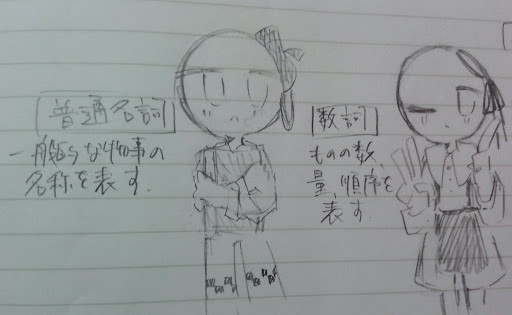 普通名詞
一般的な物事の
名称を表す.
数詞
ものの数、
量、順序を
表す.